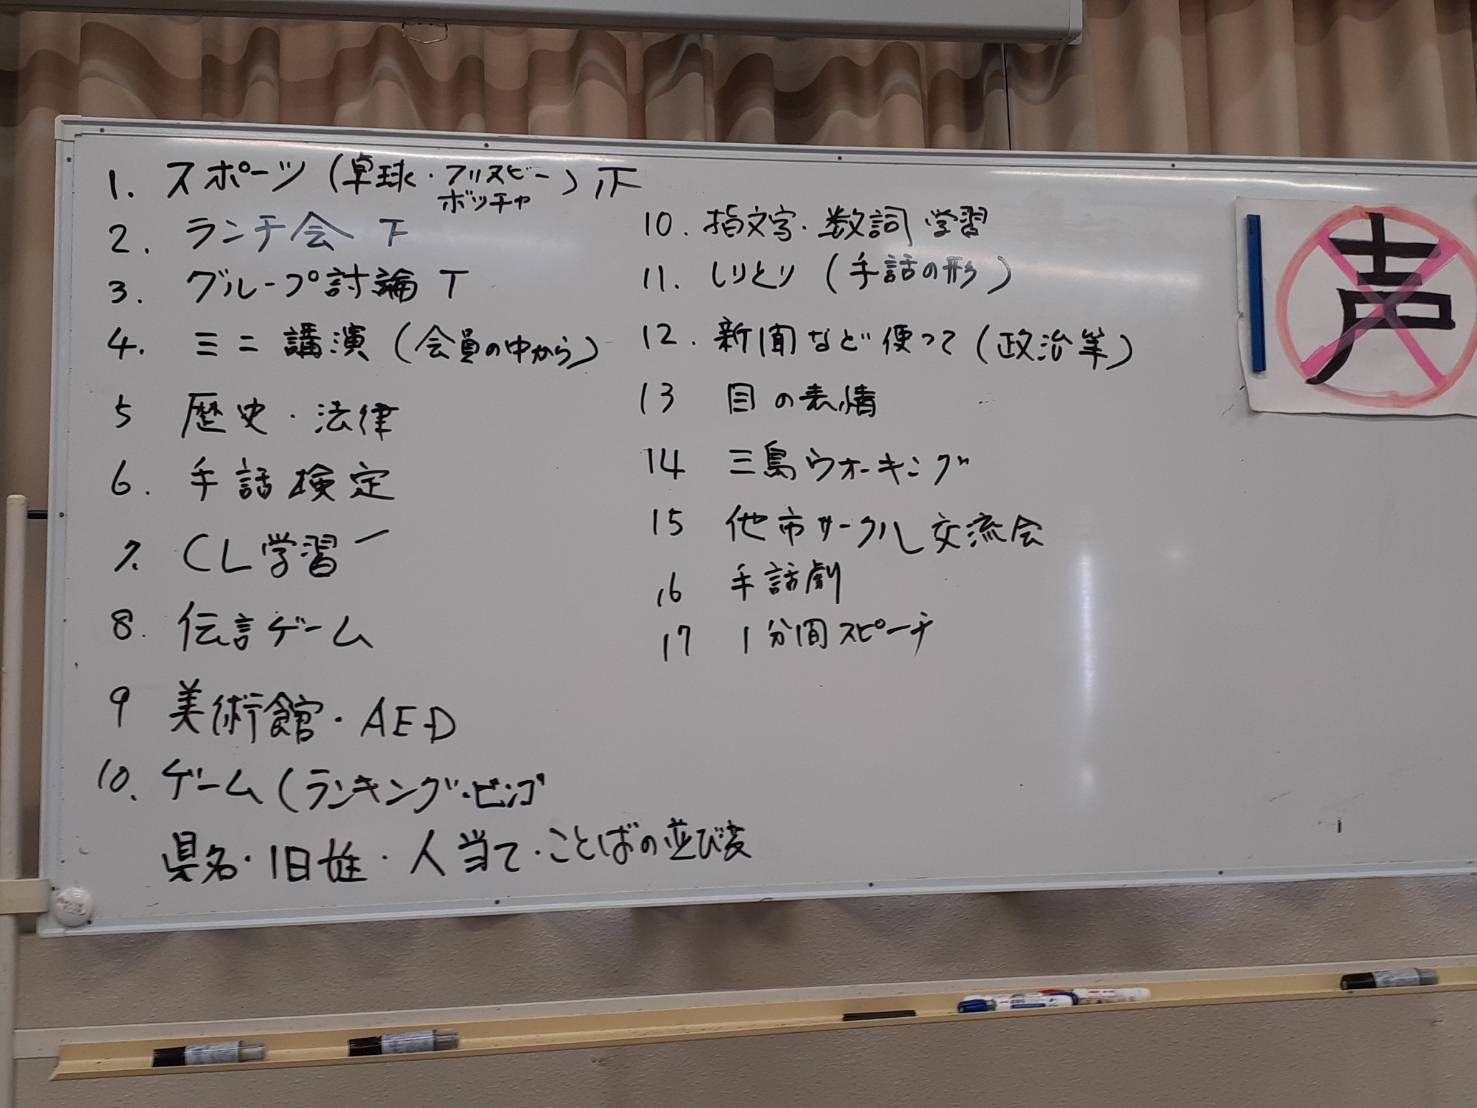 1. スポーツ(卓球・フリスビー)
ボッチャ
2. ランチ会 下
3. グループ討論 T
4. ミニ講演(会員の中から)
5 歴史・法律
6. 手話検定
7. CL学習 一
8. 伝言ゲーム
9 美術館・AED
10. ゲーム(ランキング・ビンゴ
県名・旧姓・人当て・ことばの並び変
10. 指文字・数詞 学習
11. しりとり(手話の形)
12. 新聞など使って(政治等)
13 目の表情
14 三島ウオーキング
15 他市サークル交流会
16 手話劇
17 1分間スピーチ
声